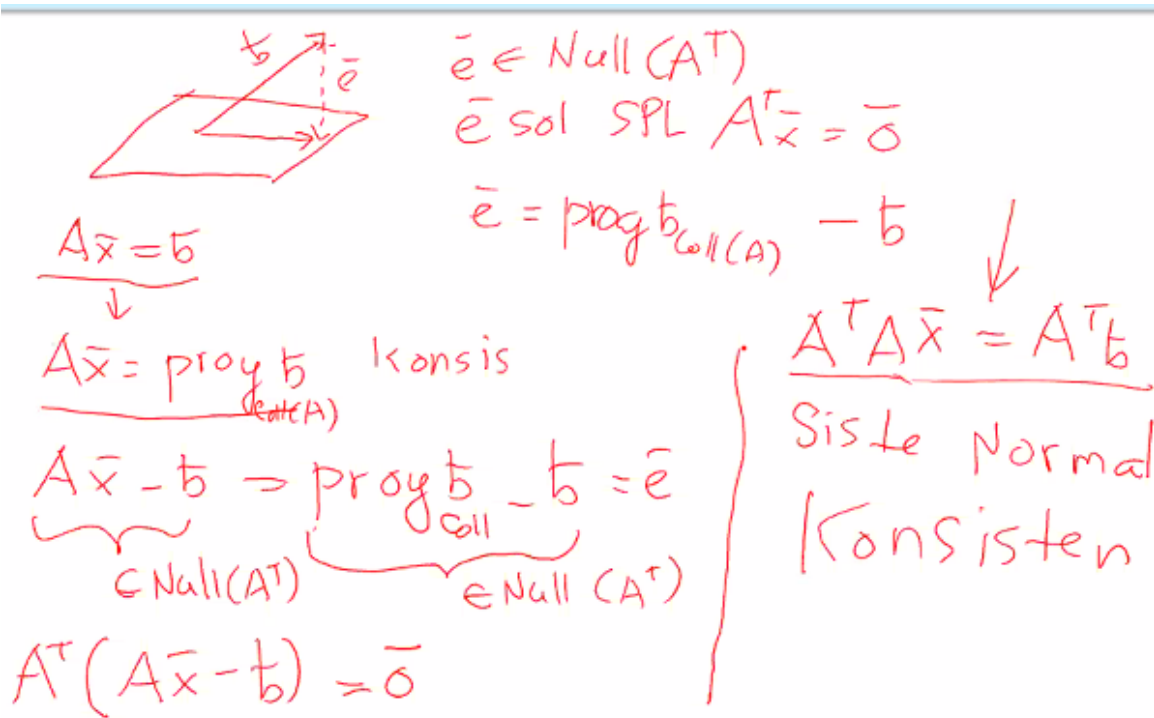 b̄ ē
ē ∈ Null (Aᵀ)
ē sol SPL Aᵀx̄ = ō
ē = proy b̄ Coll(A) - b̄
Ax̄ = b̄
↓
Ax̄ = proy b̄ Coll(A) Konsis
Ax̄ - b̄ = proy b̄ Coll - b̄ = ē
∈ Null(Aᵀ) ∈ Null (Aᵀ)
Aᵀ(Ax̄ - b̄) = ō
AᵀAx̄ = Aᵀb̄
Siste Normal
Konsisten